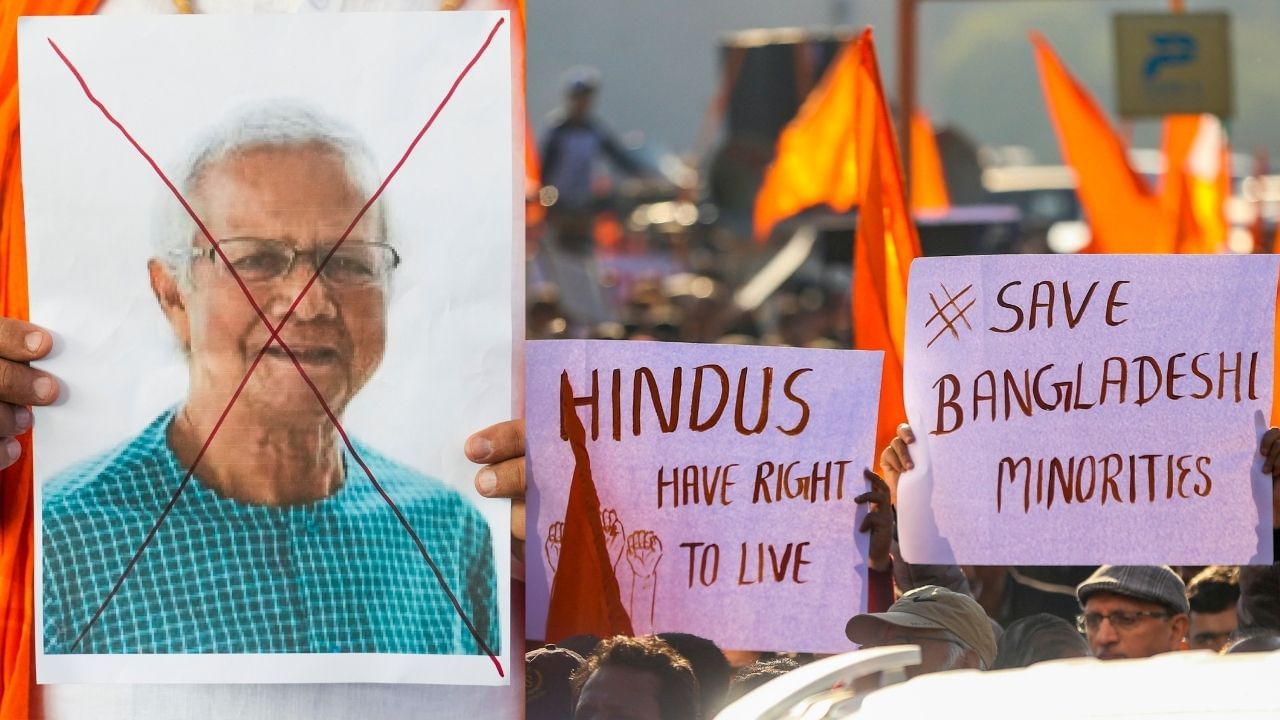 HINDUS
HAVE RIGHT
TO LIVE
# SAVE
BANGLADESHI
MINORITIES